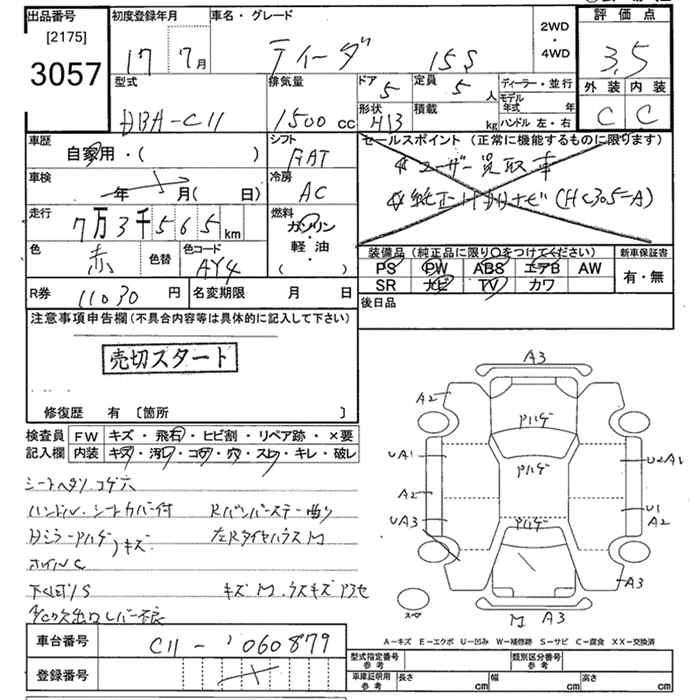 出品番号
[2175]
3057
初度登録年月
17 7月
車名・グレード
ティーダ 15S
2WD
・
4WD
評価点
3.5
外装 内装
C C
型式
DBA-C11
排気量
1500 cc
ドア
5
定員
5 人
形状
H13
積載
kg
ディーラー・並行
モデル年式 年
ハンドル 左・右
車歴
自家用・( )
シフト
FAT
セールスポイント (正常に機能するものに限ります)
☆ユーザー買取車
☆純正 ナビ (HC305-A)
車検
年 月( 日)
冷房
AC
走行
7万3千565km
燃料
ガソリン
軽・油
( )
色
赤
色替
色コード
AY4
装備品 (純正品に限り○をつけてください)
PS PW ABS エアB AW
SR ナビ TV カワ
新車保証書
有・無
R券
11030 円
名変期限 月 日
後日品
注意事項申告欄(不具合内容等は具体的に記入して下さい)
売切スタート
修復歴 有 〔箇所 〕
検査員
記入欄
FW キズ・飛石・ヒビ割・リペア跡・×要
内装 キズ・汚レ・コゲ・穴・スレ・キレ・破レ
シートヘタリ.コゲ穴
ハンドル.シートカバー付 Rバンパーステー曲り
Dミラーアハゲ,キズ 左Rタイヤハウス M
ホイルC
下くぼりS キズM.ウスキズアラセ
A/C吹出口レバー不良
A3
A2
アハゲ
UA1
アハゲ
U2A1
A2
U1
A2
UA3
アハゲ
A3
スペア
M A3
A-キズ E-エクボ U-凹み W-補修跡 S-サビ C-腐食 XX-交換済
車台番号
C11-060879
登録番号
型式指定番号
参考
類別区分番号
参考
車庫証明用
参考
長さ cm 幅 cm 高さ cm